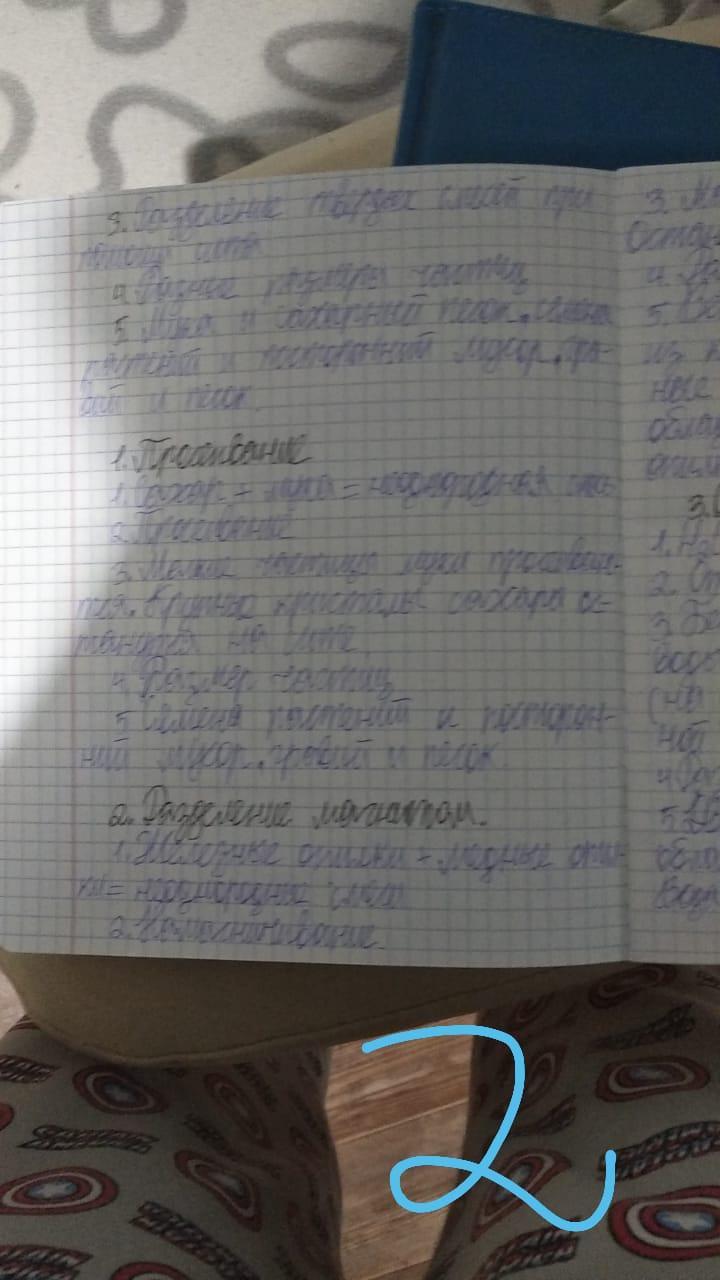 3. Разделение твёрдых смесей при
помощи сита
4. Разные размеры частиц
5. Мука и сахарный песок, семена
растений и посторонний мусор, гра-
вий и песок.
1. Просеивание
1. Сахар + мука = неоднородная
2. Просеивание
3. Мелкие частицы муки
Крупные кристалы сахара ос-
танутся на сите.
4. Размер частиц
5. Семена растений и посторон-
ний мусор, гравий и песок.
2. Разделение магнитом.
1. Железные опилки + медные опил-
ки = неоднородные смеси
2. Намагничивание.
3.
Остан
4.
5.
из
ные
обла
опил
3.
1.
2.
3.
вод
(на
ной
4.
5.
обла
вода
2